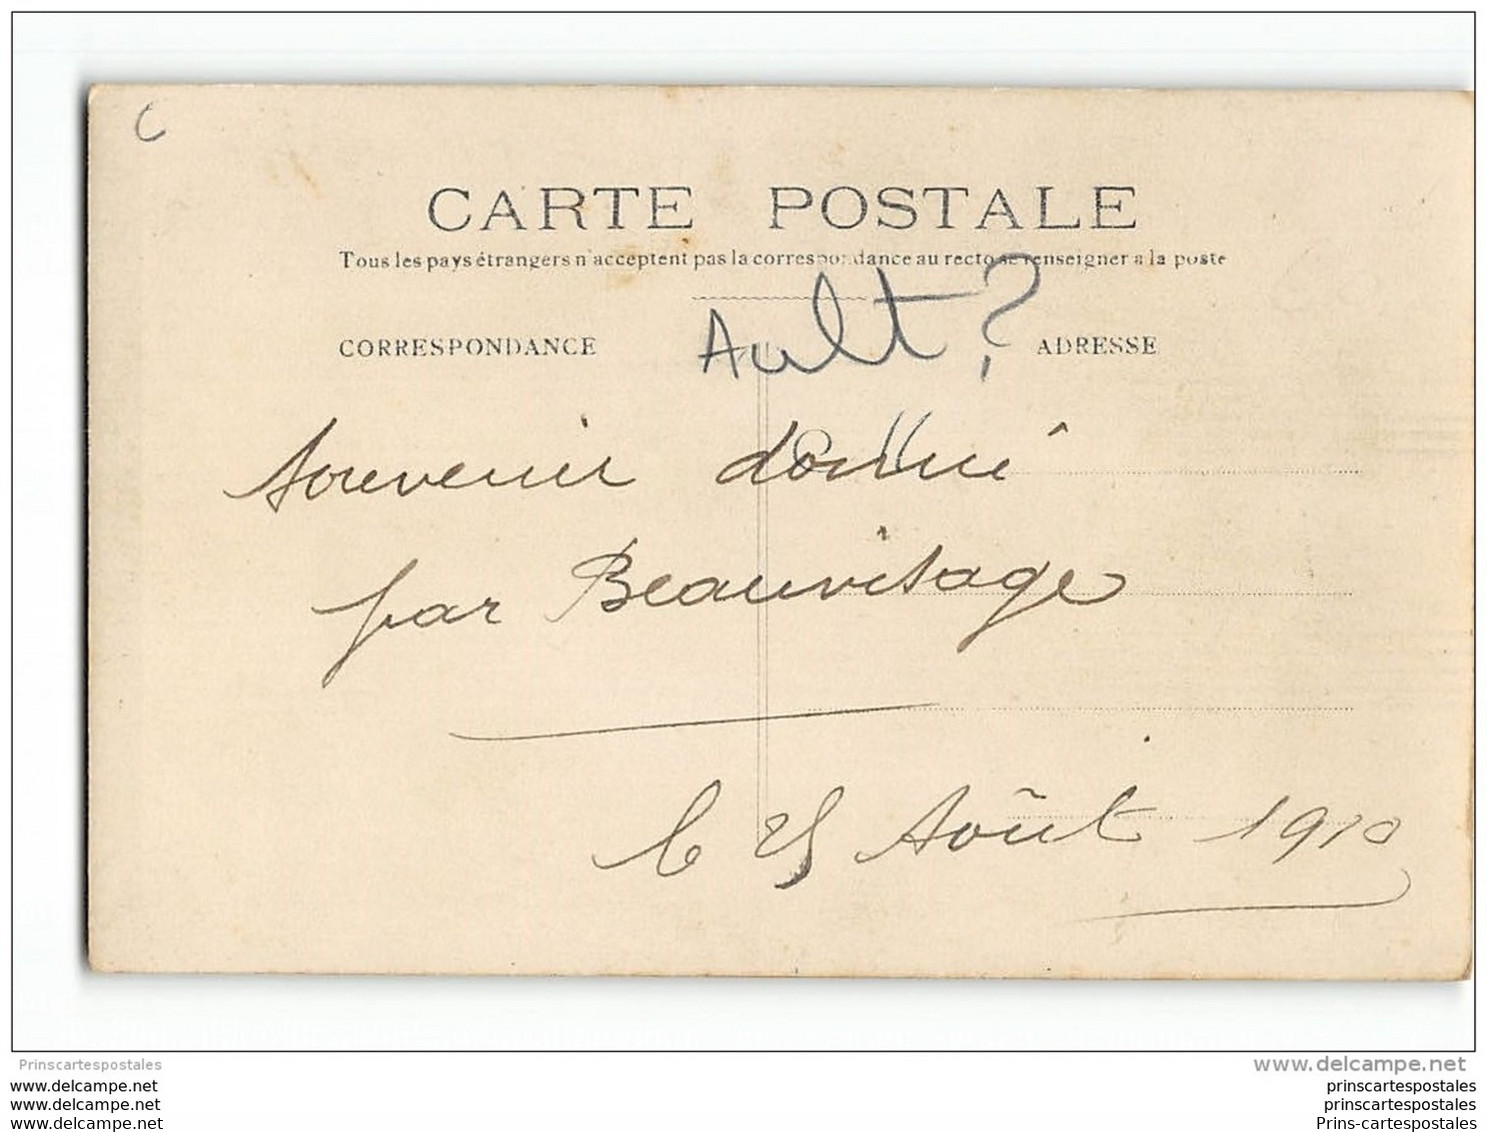 C
CARTE POSTALE
Tous les pays étrangers n'acceptent pas la correspondance au recto se renseigner à la poste
CORRESPONDANCE
Ault ?
ADRESSE
Souvenir donné
par Beauvisage
le 25 Août 1910
Prinscartespostales
www.delcampe.net
www.delcampe.net
prinscartespostales
www.delcampe.net
prinscartespostales
www.delcampe.net
Prins-cartespostales